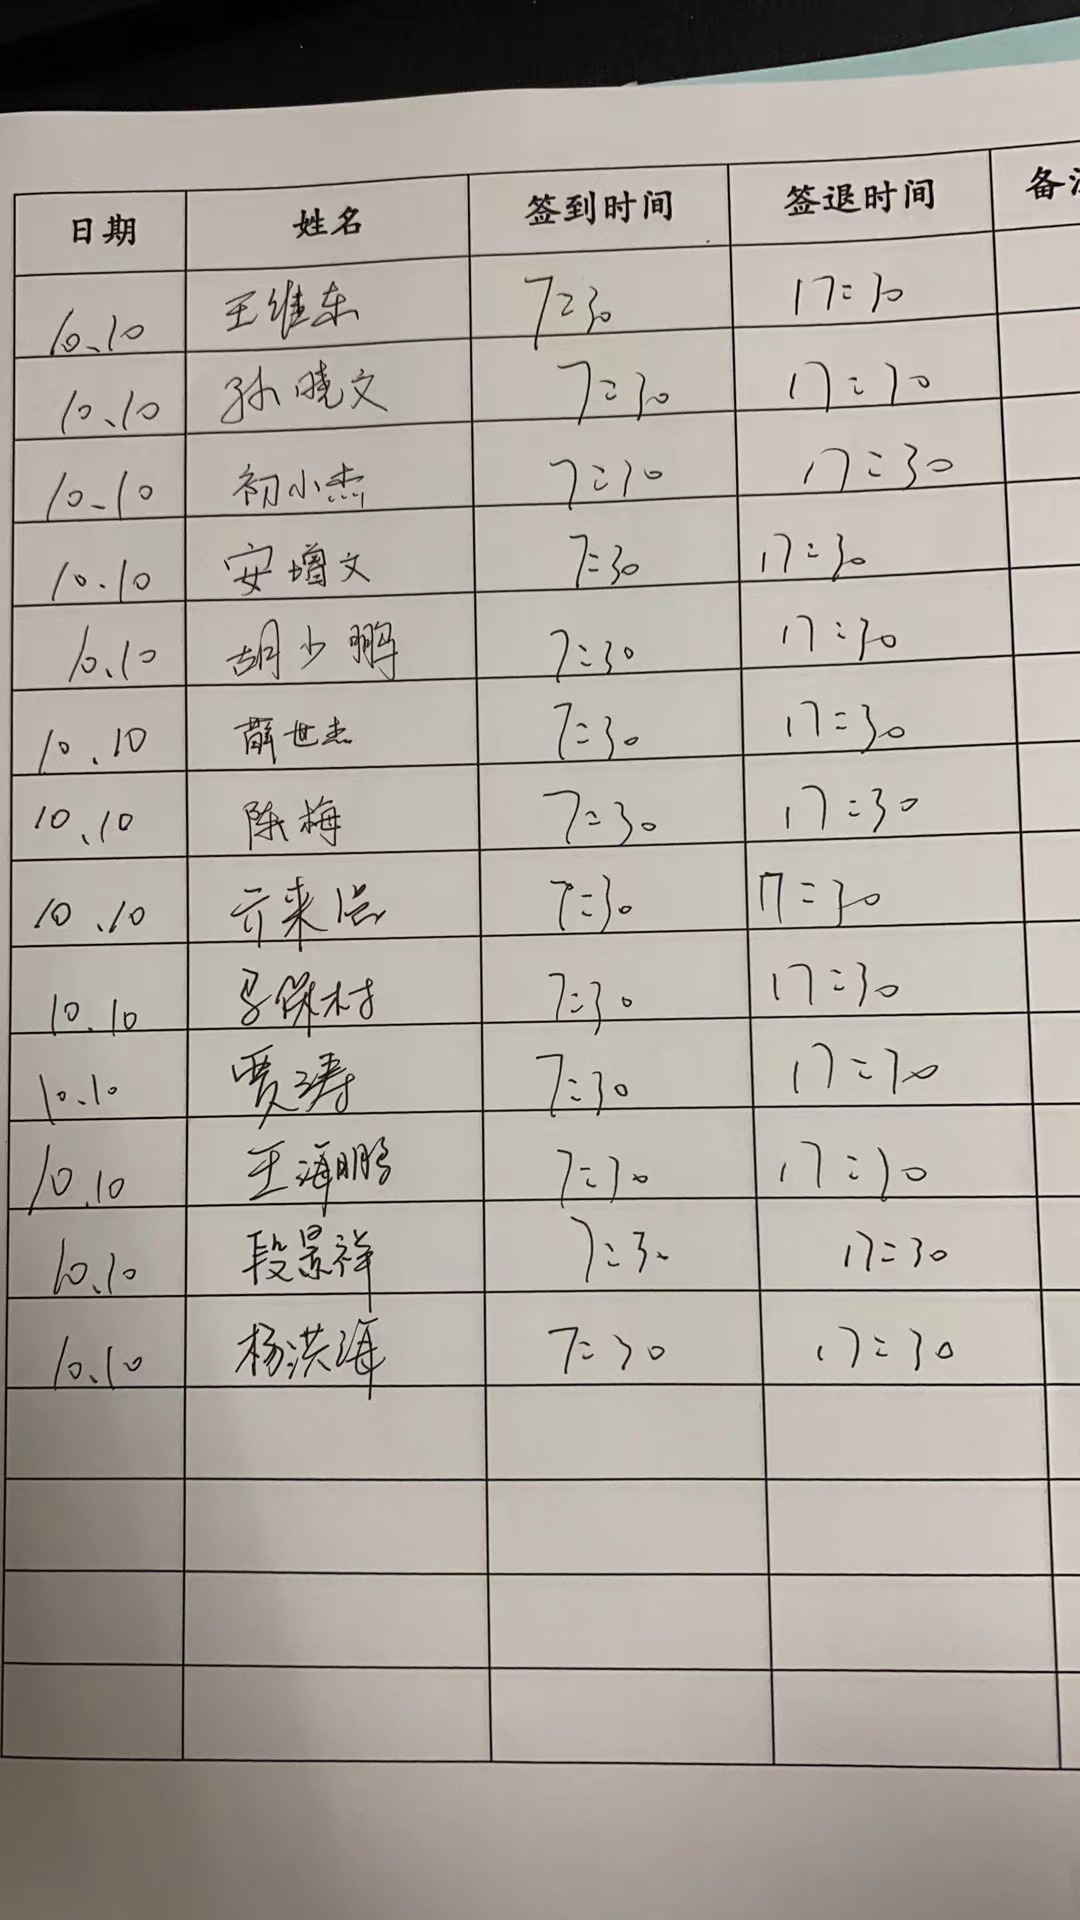 日期 姓名 签到时间 签退时间 备注
10.10 王维东 7:30 17:30
10.10 孙晓文 7:30 17:30
10.10 初小杰 7:30 17:30
10.10 安增文 7:30 17:30
10.10 胡少鹏 7:30 17:30
10.10 薛世杰 7:30 17:30
10.10 陈梅 7:30 17:30
10.10 亓来 7:30 17:30
10.10 7:30 17:30
10.10 贾涛 7:30 17:30
10.10 王海鹏 7:30 17:30
10.10 段景祥 7:30 17:30
10.10 杨洪海 7:30 17:30